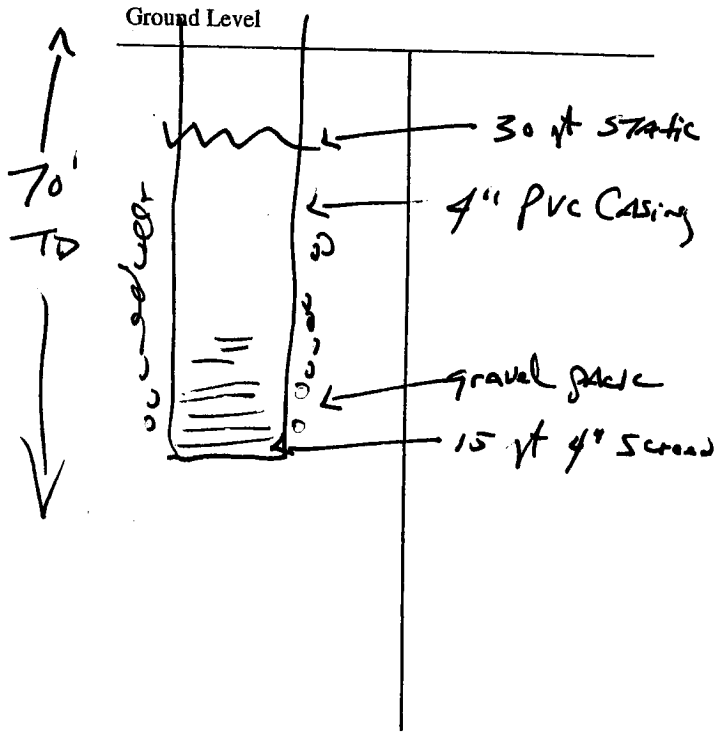 Ground Level
30 ft STATIC
70'
TD
4" PVC CASing
gravel pack
15 ft 4" Screen